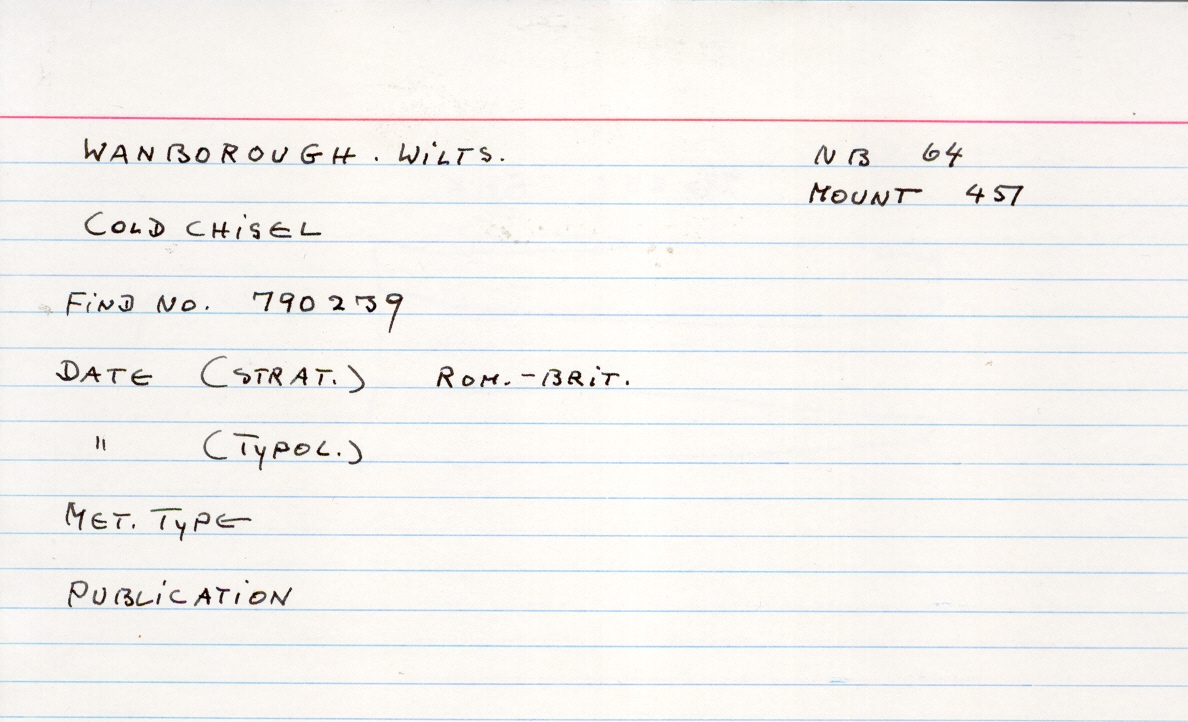 WANBOROUGH. WILTS.
NB 64
MOUNT 457
COLD CHISEL
FIND NO. 790239
DATE (STRAT.) ROM.-BRIT.
" (TYPOL.)
MET. TYPE
PUBLICATION